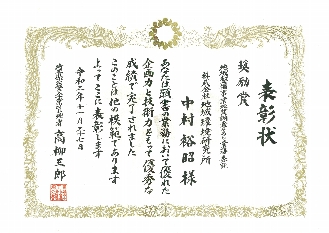 表彰状
奨励賞
株式会社 地域環境研究所
中村 裕昭 様
あなたは頭書の業務において優れた
企画力と技術力をもって優秀な
成績で完了されました
このことは他の模範であります
よってここに表彰します
令和二年十一月六七日
高柳三郎